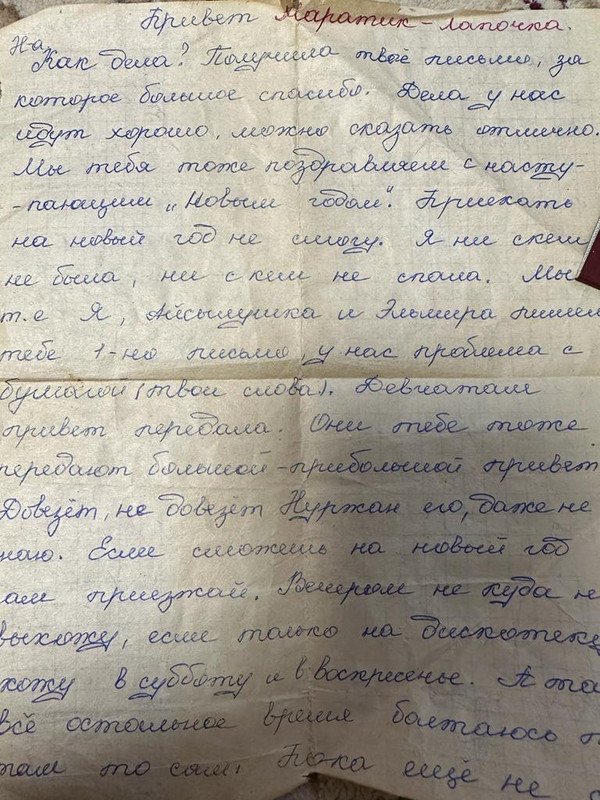 Привет Маратик-лапочка.
Как дела? Получила твоё письмо, за
которое большое спасибо. Дела у нас
идут хорошо, можно сказать отлично.
Мы тебя тоже поздравляем с насту-
-пающим „Новым годом". Приехать
на новый год не смогу. Я ни с кем
не была, ни с кем не спала. Мы
т.е Я, Айсылушка и Эльмира пишем
тебе 1-но письмо, у нас проблема с
бумагой (твои слова). Девчатам
привет передала. Они тебе тоже
передают большой-прибольшой привет
Довезёт, не довезёт Нуржан его, даже не
наю. Если сможешь на новый год
ам приезжай. Вечером не куда не
выхожу, если только на дискотеку
хожу в субботу и в воскресенье. А та
всё остальное время болтаюсь
там то сям. Пока ещё не